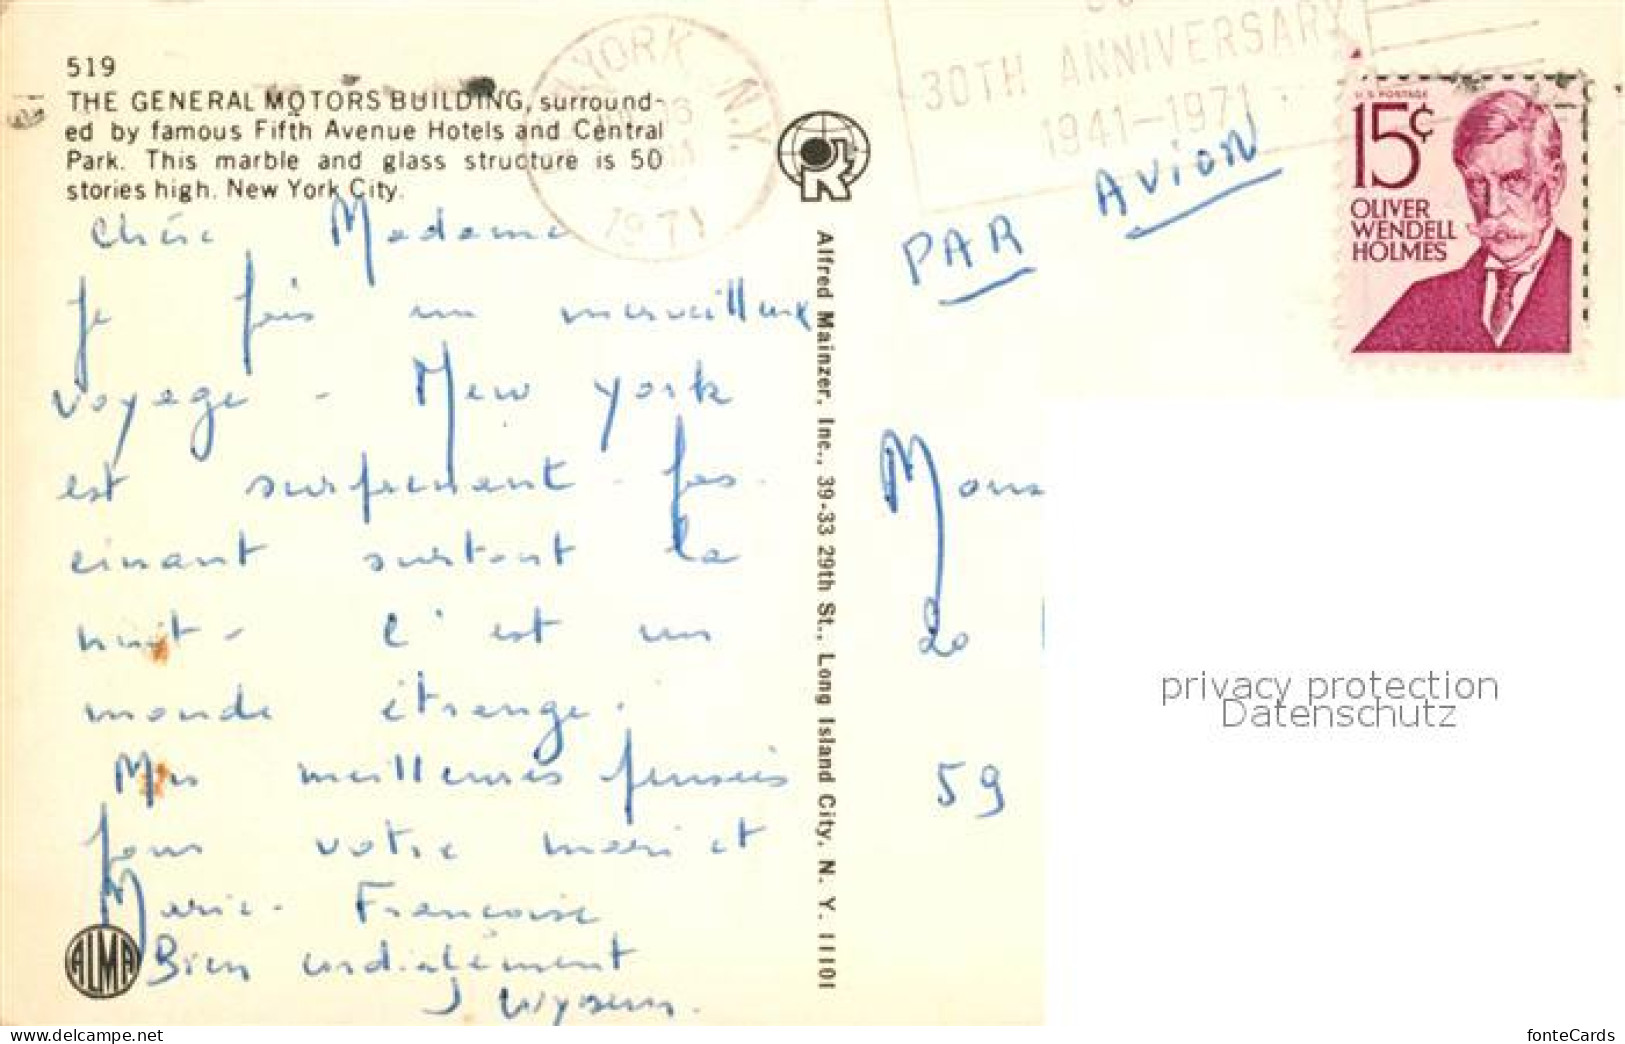 519
THE GENERAL MOTORS BUILDING, surround-
ed by famous Fifth Avenue Hotels and Central
Park. This marble and glass structure is 50
stories high. New York City.
Chère Madame
Je fais un merveilleux
voyage - New York
est surprenant - fas-
cinant surtout la
nuit - C'est un
monde étrange.
Mes meilleures pensées
pour votre mari et
Marie-Françoise
Bien cordialement
J
ALMA
Alfred Mainzer, Inc., 39-33 29th St., Long Island City, N. Y. 11101
YORK N.Y.
1971
30TH ANNIVERSARY
1941-1971
PAR AVION
U S POSTAGE
15¢
OLIVER
WENDELL
HOLMES
Mons
20
59
privacy protection
Datenschutz
delcampe.net
fonteCards